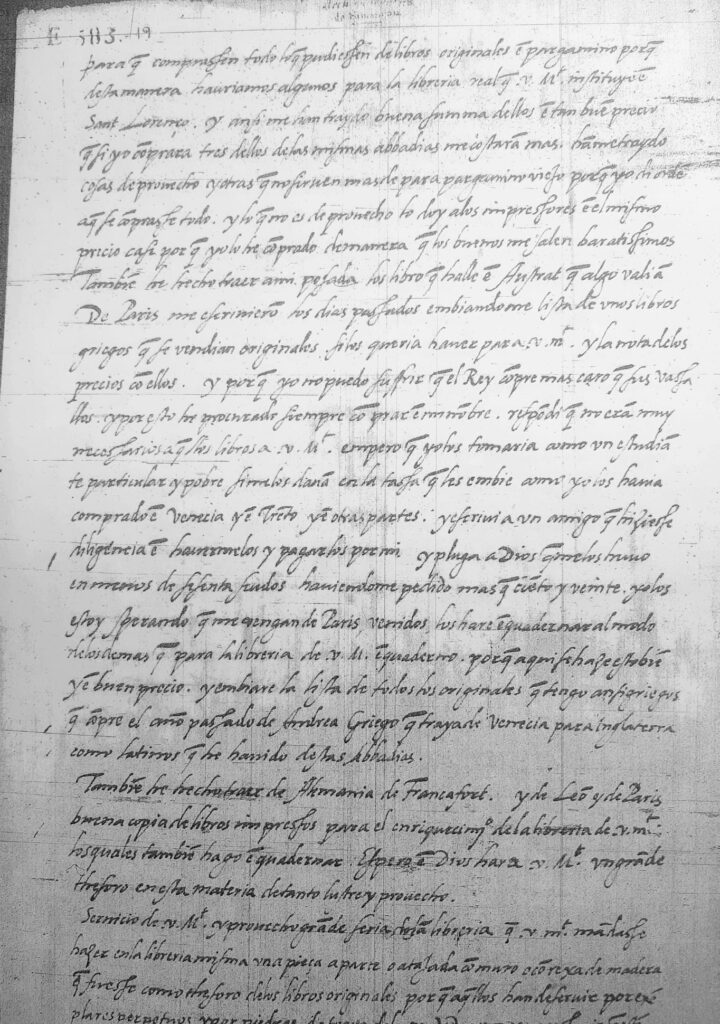 E 583. 19
para q̃ comprassen todo lo q̃ pudiessen de libros originales ẽ pargamino porq̃
desta manera hauriamos algunos para la libreria real q̃ v. Mᵗ. instituyo ẽ
Sant Lorenço. y ansi me han traydo buena summa dellos ẽ tan buẽ precio
q̃ si yo cõprara tres dellos de las mismas abbadias me costarã mas. hãme traydo
cosas de prouecho y otras q̃ no siruen mas de para pargamino viejo porq̃ yo di ordẽ
a q̃ se cõprasse todo. y lo q̃ no es de prouecho lo doy a los impressores ẽ el mismo
precio casi por q̃ yo lo he cõprado demanera q̃ los buenos me salen baratissimos
Tambiẽ he hecho traer a mi posada los libro q̃ halle ẽ Austrat q̃ algo valiã
De Paris me escriuierõ los dias passados embiandome lista de vnos libros
griegos q̃ se vendian originales si los queria hauer para v. mᵗ. y la nota de los
precios cõ ellos. y por q̃ yo no puedo suffrir q̃ el Rey cõpre mas caro q̃ sus vassa
llos. y por esto he procurado siempre cõprar ẽ mi nõbre. respõdi q̃ no erã muy
necessarios aq̃llos libros a v. Mᵗ. empero q̃ yo los tomaria como vn estudiã
te particular y pobre si me los dauã en la tassa q̃ les embie como yo los hauia
comprado ẽ Venecia y ẽ Trẽto y ẽ otras partes. y escriui a vn amigo q̃ hiziesse
diligẽcia ẽ hauermelos y pagarlos por mi y plugo a Dios q̃ me los huuo
en menos de sesenta scudos hauiendome pedido mas q̃ ciẽto y veinte. yo los
estoy sperando q̃ me vengan de Paris, venidos, los hare ẽquadernar al modo
de los demas q̃ para la libreria de v. M. ẽquaderno. porq̃ aqui se haze esto biẽ
y ẽ buen precio. y embiare la lista de todos los originales q̃ tengo ansi griegos
q̃ cõpre el año passado de Andrea Griego q̃ traya de Venecia para Inglaterra
como latinos q̃ he hauido destas Abbadias.
Tambiẽ he hecho traer de Alemania de Francafort. y de Leõ y de Paris
buena copia de libros impressos para el enriquecimᵒ. de la libreria de v. mᵗ.
los quales tambiẽ hago ẽquadernar. Espero ẽ Dios hara v. Mᵗ. vn grãde
thesoro en esta materia de tanto lustre y prouecho.
Seruicio de v. Mᵗ. y prouecho grãde seria desta libreria q̃ v. mᵗ. mãdasse
hazer en la libreria misma vna pieça aparte o atajada cõ muro o cõ rexa de madera
q̃ fuesse como thesoro de los libros originales porq̃ aq̃llos han de seruir por exẽ
plares perpetuos y por